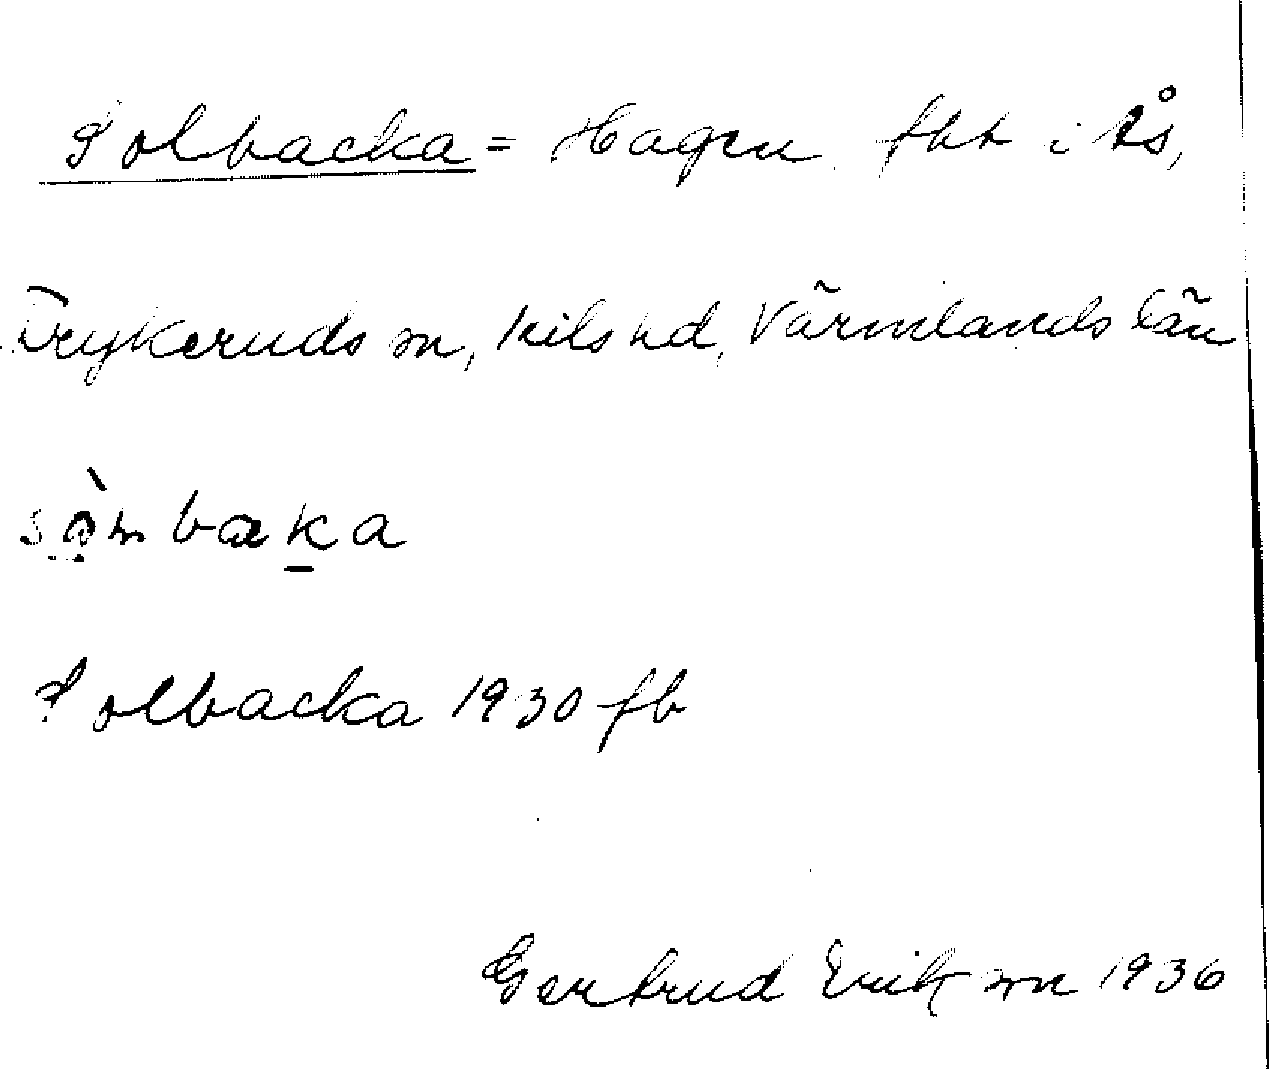 Solbacka = Hagen fht i Ås,
Frykeruds sn, Kils hd, Värmlands län
Solbacka 1930 fb
Gertrud Erikson 1936